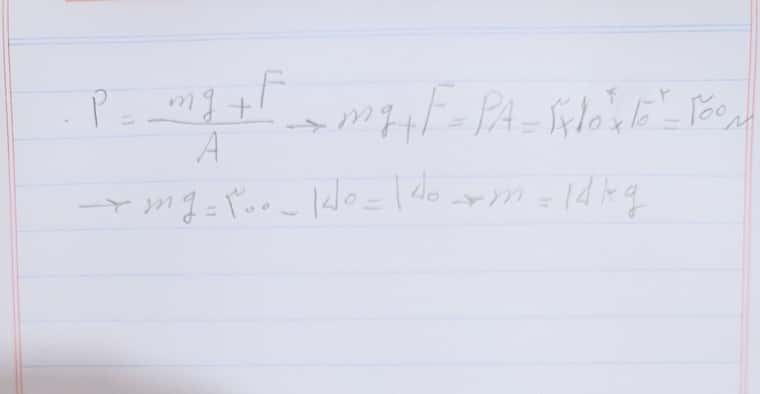 P = (mg + F) / A → mg + F = PA = ۳ × ۱۰^۴ × ۱۰^-۲ = ۳۰۰ N
→ mg = ۳۰۰ - ۱۵۰ = ۱۵۰ → m = ۱۵ kg